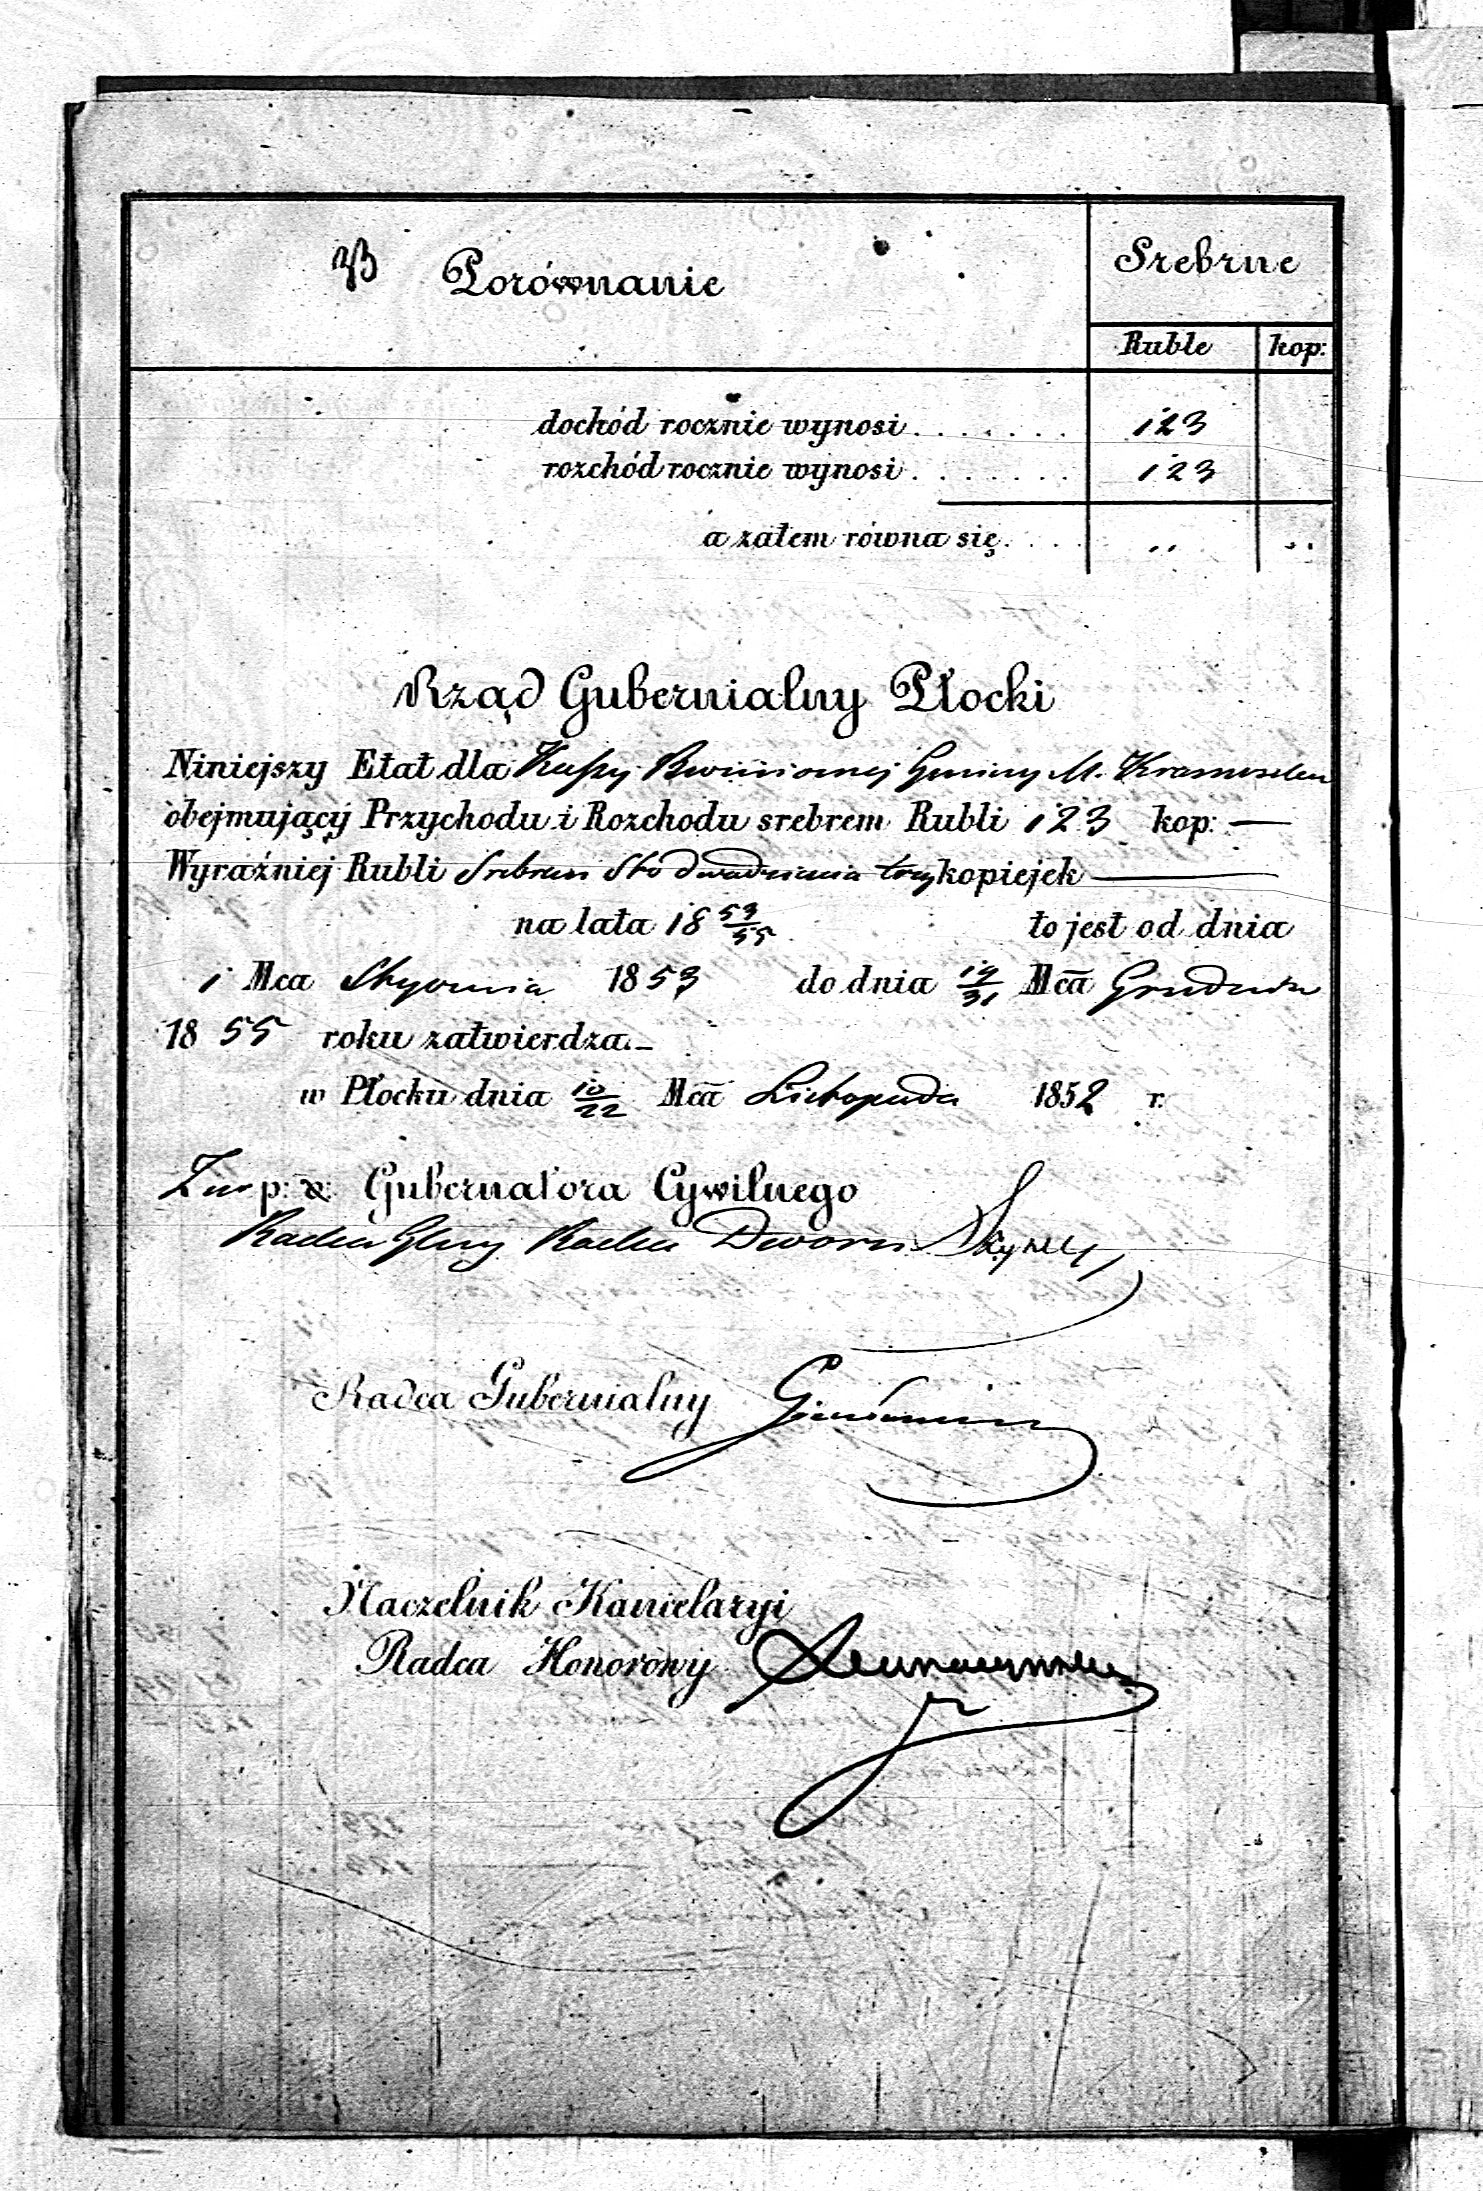 Porównanie
Srebrne
Ruble kop:
dochód rocznie wynosi . . . . . . . 123
rozchód rocznie wynosi . . . . . . . 123
a zatem równa się . . . . „ „
Rząd Gubernialny Płocki
Niniejszy Etat dla Kassy Bożniczney Gminy M. Krasnosielca
obejmujący Przychodu i Rozchodu srebrem Rubli 123 kop: —
Wyraźniej Rubli Srebrem Sto dwadzieścia trzy kopiejek —
na lata 18 53/55 to jest od dnia
1 Mca Stycznia 1853 do dnia 19/31 Mca Grudnia
18 55 roku zatwierdza. –
w Płocku dnia 10/22 Mca Listopada 1852 r.
Za p: o: Gubernatora Cywilnego
Radca Gbny Radca Dworu
Radca Gubernialny
Naczelnik Kancelaryi
Radca Honorowy